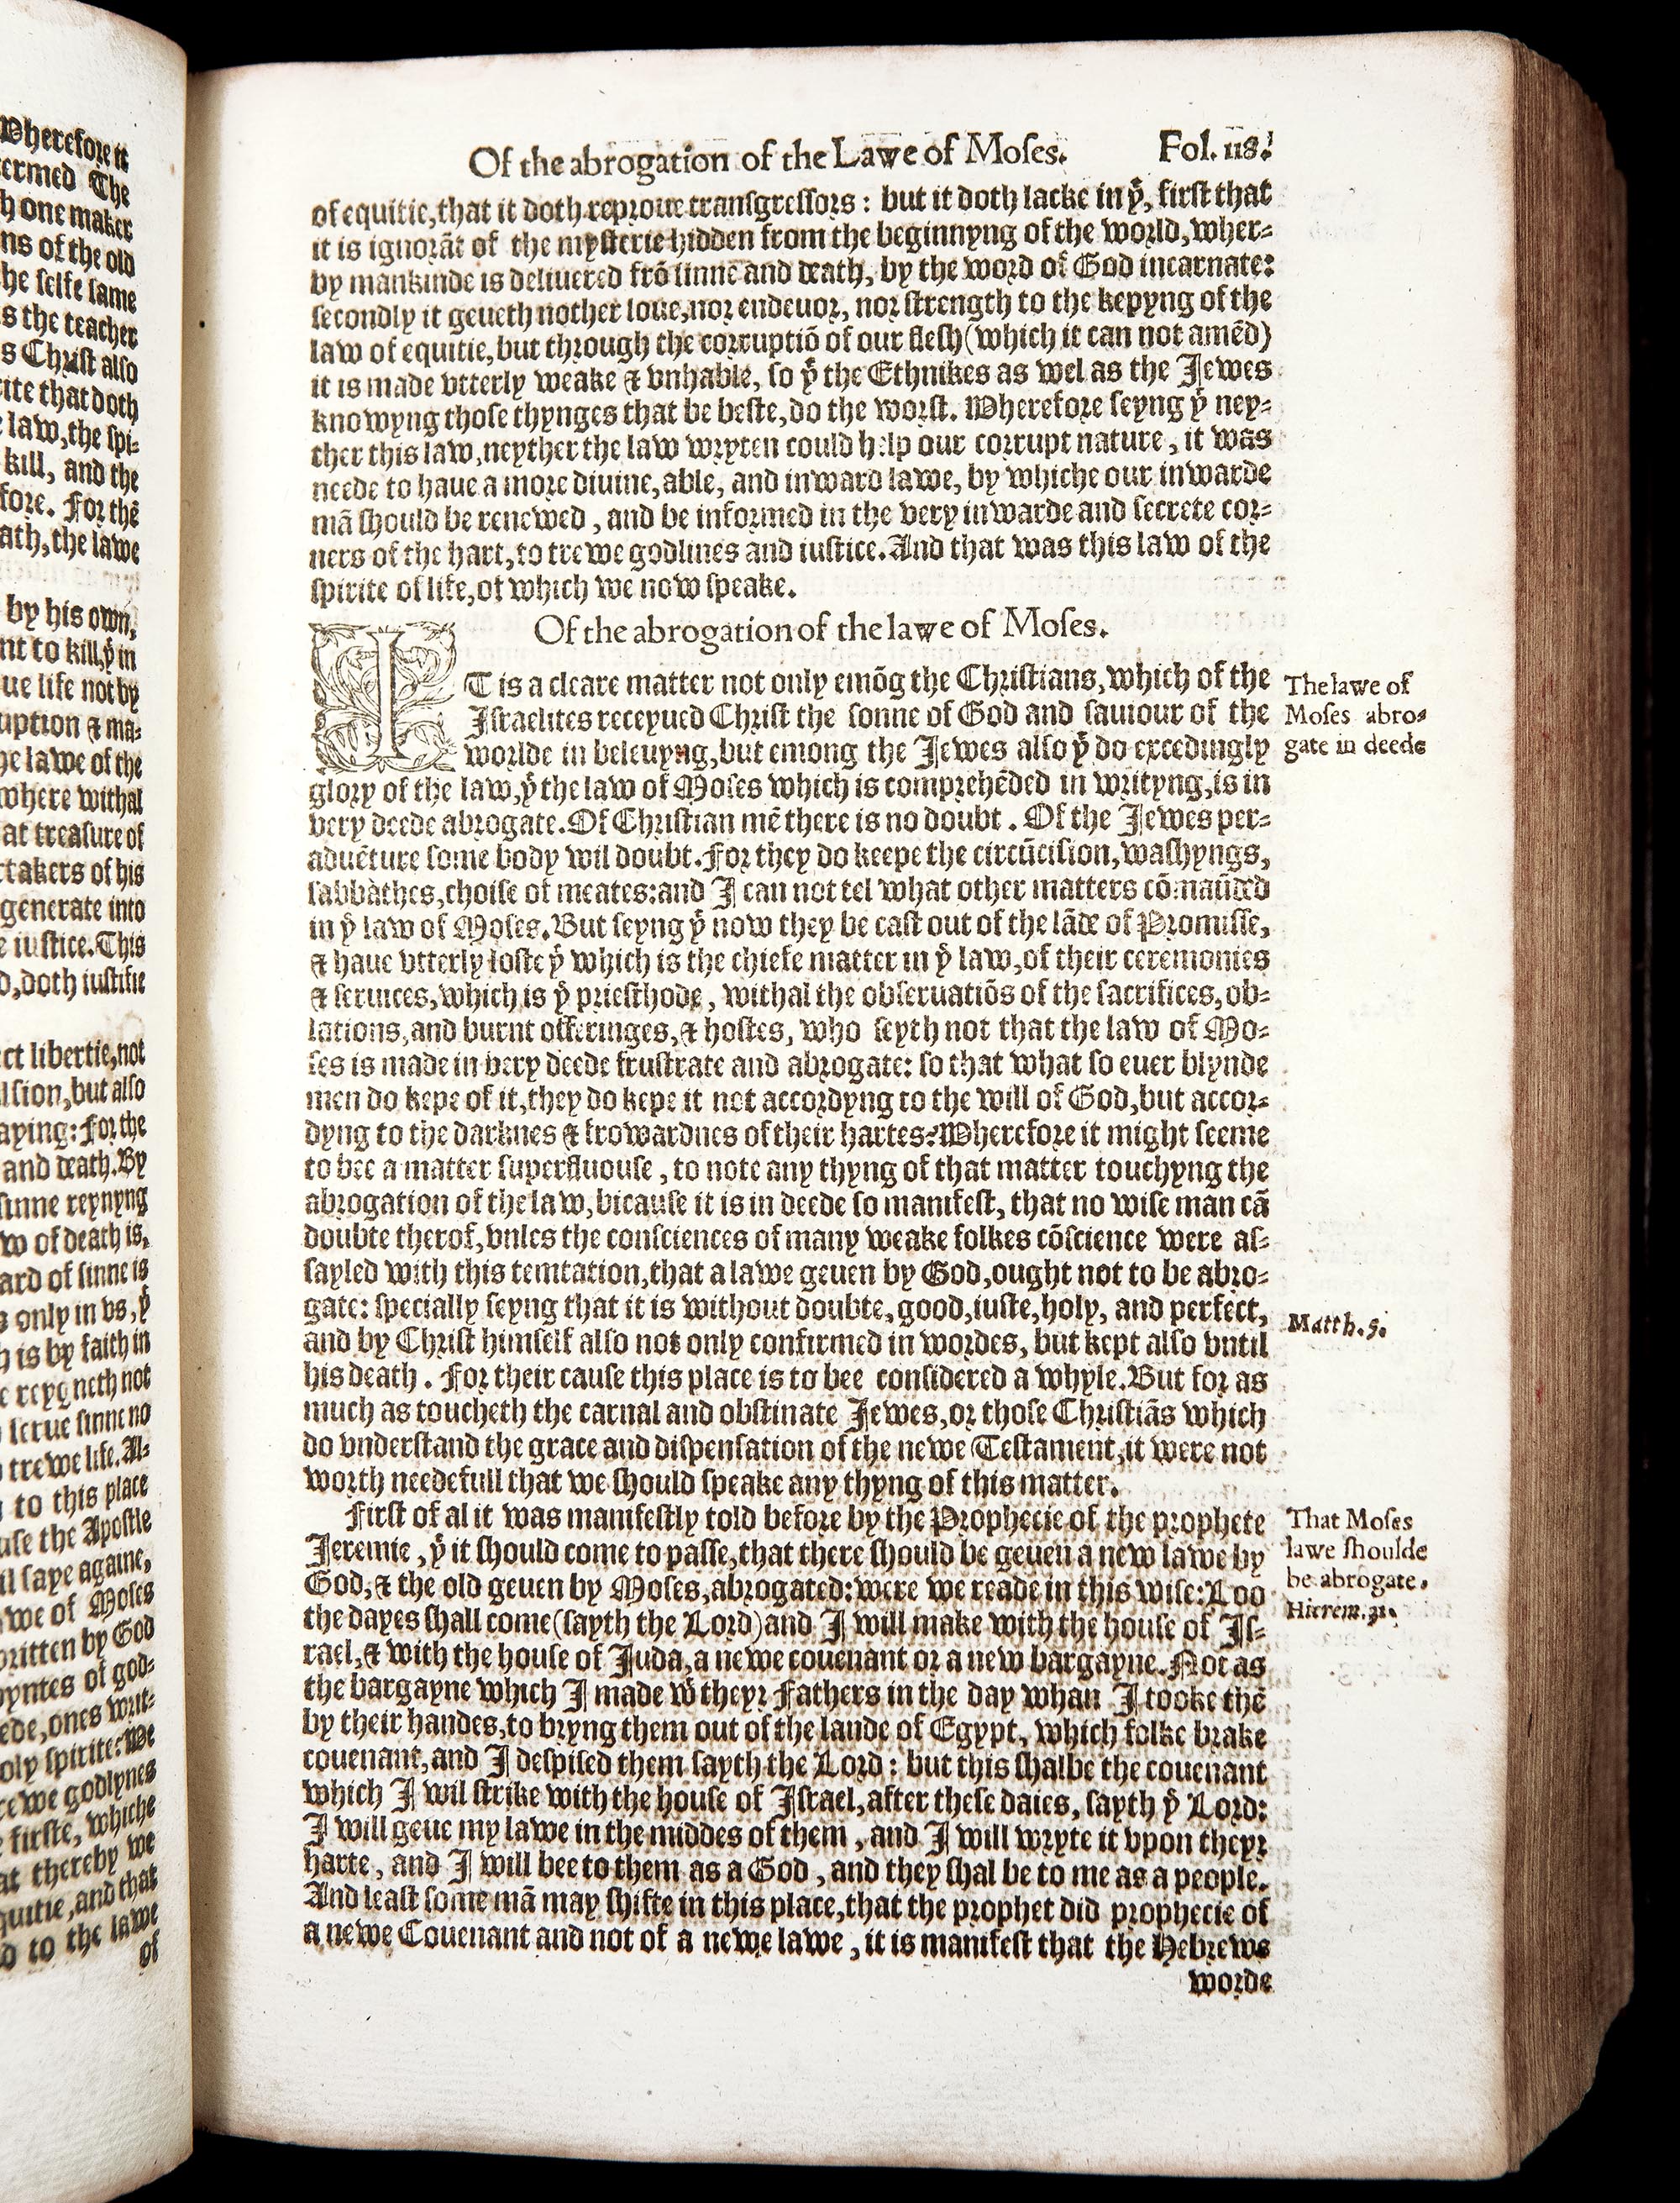 Wherefore it
termed The
h one maker
ns of the old
he ſelfe ſame
s the teacher
s Chriſt also
rite that doth
law, the ſpi-
kill, and the
fore. For thē
ath, the lawe
by his own,
nt to kill, yͭ in
ue life not by
uption & ma-
he lawe of the
where withal
at treaſure of
rtakers of his
generate into
e iuſtice. This
d, doth iuſtifie
ct libertie, not
lſion, but alſo
aying: For the
and death. By
ſinne reynyng
w of death is,
ard of ſinne is
s only in vs, yͭ
h is by faith in
e reygneth not
ſerue ſinne no
trewe life. Al-
to this place
uſe the Apoſtle
il ſaye againe,
we of Moſes
written by God
oyntes of god-
ede, ones writ-
oly ſpirite: We
rewe godlynes
firſte, whiche
at thereby we
quitie, and that
d to the lawe
of
Of the abrogation of the Lawe of Moſes. Fol. 118.
of equitie, that it doth reproue tranſgreſſors: but it doth lacke in yͭ, firſt that
it is ignorāt of the myſterie hidden from the beginnyng of the world, wher-
by mankinde is deliuered frō ſinne and death, by the word of God incarnate:
ſecondly it geueth nother loue, nor endeuor, nor ſtrength to the kepyng of the
law of equitie, but through the corruptiō of our fleſh (which it can not amēd)
it is made vtterly weake & vnhable, ſo yͭ the Ethnikes as wel as the Jewes
knowyng thoſe thynges that be beſte, do the worſt. Wherefore ſeyng yͭ ney-
ther this law, neyther the law wryten could help our corrupt nature, it was
neede to haue a more diuine, able, and inward lawe, by whiche our inwarde
mā ſhould be renewed, and be informed in the very inwarde and ſecrete cor-
ners of the hart, to trewe godlines and iuſtice. And that was this law of the
ſpirite of life, of which we now ſpeake.
Of the abrogation of the lawe of Moſes.
IT is a cleare matter not only emōg the Chriſtians, which of the
Iſraelites receyued Chriſt the ſonne of God and ſauiour of the
worlde in beleuyng, but emong the Jewes alſo yͭ do excedingly
glory of the law, yͭ the law of Moſes which is comprehēded in writyng, is in
very deede abrogate. Of Chriſtian mē there is no doubt. Of the Jewes per-
aduēture ſome body wil doubt. For they do keepe the circūciſion, waſhyngs,
ſabbathes, choiſe of meates: and I can not tel what other matters cōmaūded
in yͤ law of Moſes. But ſeyng yͭ now they be caſt out of the lāde of Promiſſe,
& haue vtterly loſte yͭ which is the chiefe matter in yͤ law, of their ceremonies
& ſeruices, which is yͤ prieſthode, withal the obſeruatiōs of the ſacrifices, ob-
lations, and burnt offeringes, & hoſtes, who ſeyth not that the law of Mo-
ſes is made in very deede fruſtrate and abrogate: ſo that what ſo euer blynde
men do kepe of it, they do kepe it not accordyng to the will of God, but accor-
dyng to the darknes & frowardnes of their hartes? Wherefore it might ſeeme
to bee a matter ſuperfluouſe, to note any thyng of that matter touchyng the
abrogation of the law, bicauſe it is in deede ſo manifeſt, that no wiſe man cā
doubte therof, vnles the conſciences of many weake folkes cōſcience were aſ-
ſayled with this temtation, that a lawe geuen by God, ought not to be abro-
gate: ſpecially ſeyng that it is without doubte, good, iuſte, holy, and perfect,
and by Chriſt himſelf alſo not only confirmed in wordes, but kept alſo vntil
his death. For their cauſe this place is to bee conſidered a whyle. But for as
much as toucheth the carnal and obſtinate Jewes, or thoſe Chriſtiās which
do vnderſtand the grace and diſpenſation of the newe Teſtament, it were not
worth needefull that we ſhould ſpeake any thyng of this matter.
Firſt of al it was manifeſtly told before by the Prophecie of the prophete
Jeremie, yͭ it ſhould come to paſſe, that there ſhould be geuen a new lawe by
God, & the old geuen by Moſes, abrogated: were we reade in this wiſe: Loo
the dayes ſhall come (ſayth the Lord) and I will make with the houſe of Iſ-
rael, & with the houſe of Juda, a newe couenant or a new bargayne. Not as
the bargayne which I made wͭ theyr Fathers in the day whan I tooke thē
by their handes, to bryng them out of the lande of Egypt, which folke brake
couenant, and I deſpiſed them ſayth the Lord: but this ſhalbe the couenant
which I wil ſtrike with the houſe of Iſrael, after theſe daies, ſayth yͤ Lord:
I will geue my lawe in the middes of them, and I will wryte it vpon theyr
harte, and I will bee to them as a God, and they ſhal be to me as a people.
And leaſt ſome mā may ſhifte in this place, that the prophet did prophecie of
a newe Couenant and not of a newe lawe, it is manifeſt that the Hebrews
worde
The lawe of
Moſes abro-
gate in deede
Matth. 5.
That Moſes
lawe ſhoulde
be abrogate.
Hierem. 31.